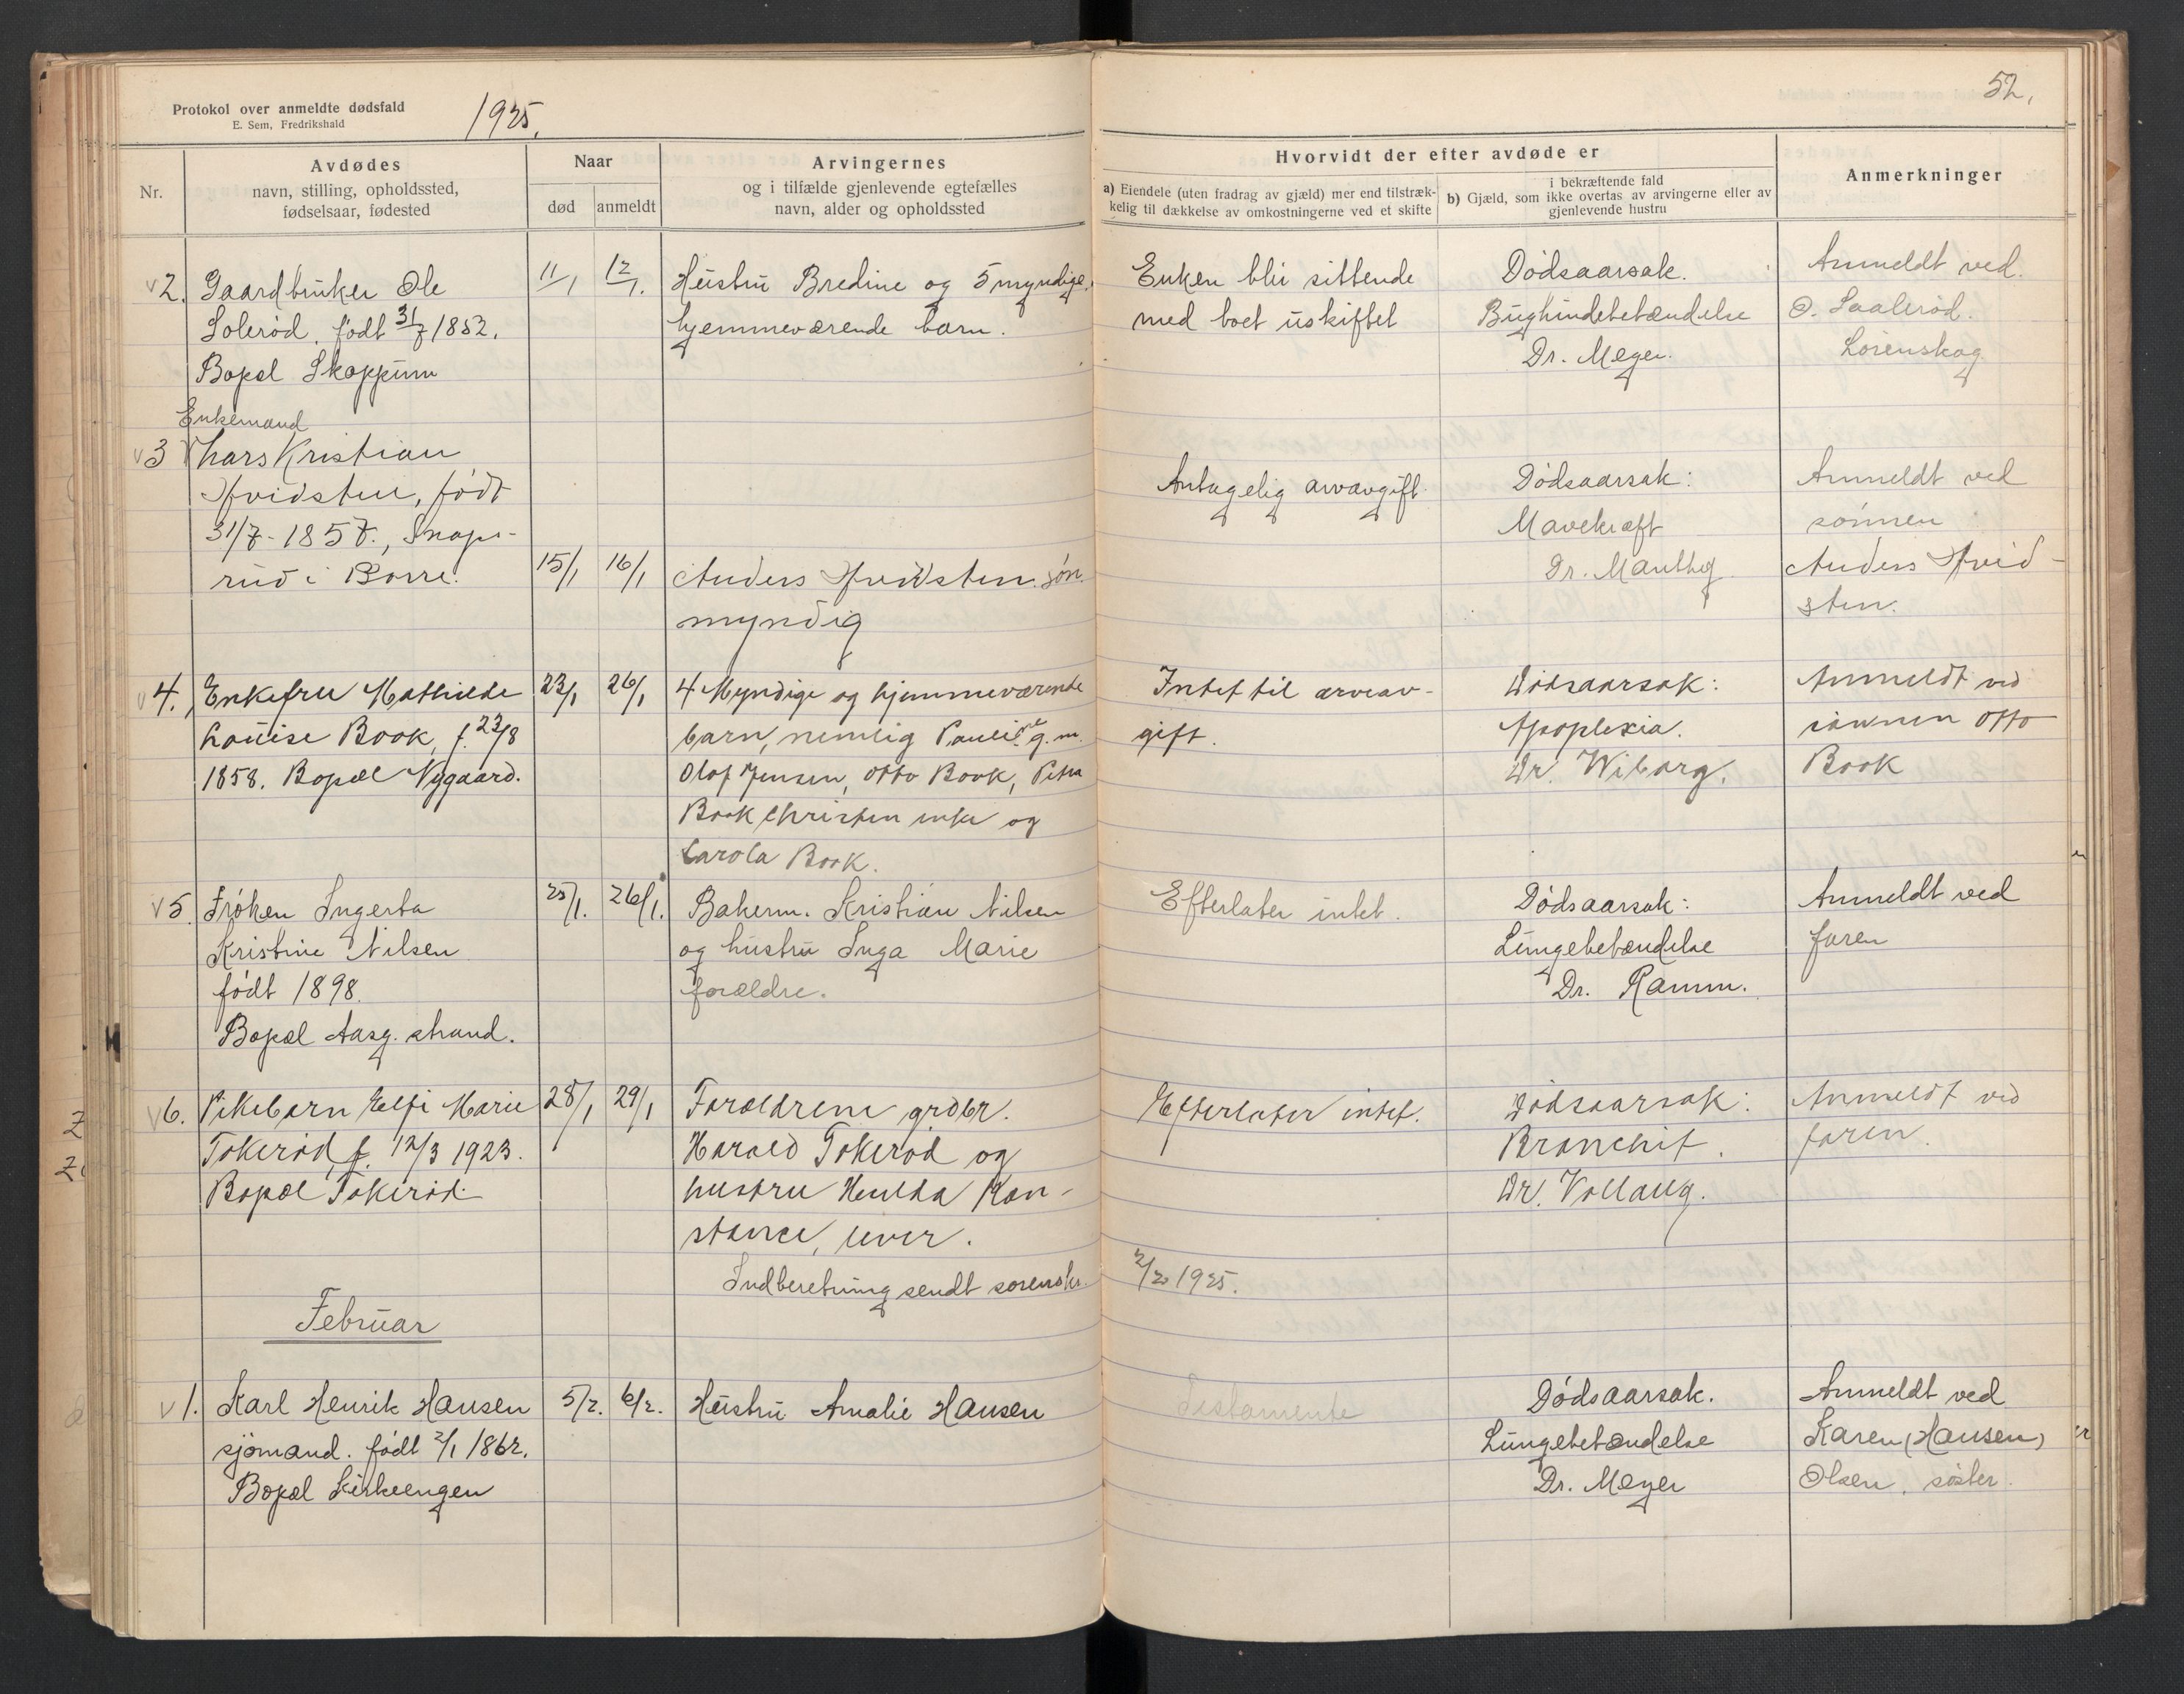 Protokol over anmeldte dødsfald
E. Sem, Fredrikshald
1925.
52.
Nr.
Avdødes
navn, stilling, opholdssted,
fødselsaar, fødested
Naar
død
anmeldt
Arvingernes
og i tilfælde gjenlevende egtefælles
navn, alder og opholdssted
Hvorvidt der efter avdøde er
a) Eiendele (uten fradrag av gjæld) mer end tilstræk-
kelig til dækkelse av omkostningerne ved et skifte
i bekræftende fald
b) Gjæld, som ikke overtas av arvingerne eller av
gjenlevende hustru
Anmerkninger
v 2. Gaardbruker Ole
Solerød, født 31/7 1852.
Bopæl Skoppum
11/1
12/1.
Hustru Bredine og 5 myndige,
hjemmeværende barn.
Enken blir sittende
med boet uskiftet
Dødsaarsak.
Bughindebetændelse
Dr. Meyer.
Anmeldt ved.
O. Saalerød.
Lørenskog
Enkemand
v 3 Lars Kristian
Hvidsten, født
31/7 - 1857., Snaps-
rud i Borre.
15/1
16/1
Anders Hvidsten. søn.
myndig
Antagelig arvavgift.
Dødsaarsak:
Mavekræft
Dr. Manthey
Anmeldt ved
sønnen
Anders Hvid-
sten.
v 4. Enkefru Mathilde
Louise Book, f. 23/8
1858. Bopæl Nygaard.
23/1
26/1
4 Myndige og hjemmeværende
barn, nemlig Pauline g. m.
Olof Jensen, Otto Book, Petra
Book Christen enke og
Carola Book.
Intet til arveav-
gift.
Dødsaarsak:
Apoplexia.
Dr. Wiborg.
Anmeldt ved
sønnen Otto
Book
v 5. Frøken Ingerta
Kristine Nilsen
født 1898.
Bopæl Aasg. strand.
25/1.
26/1.
Bakerm. Kristian Nilsen
og hustru Inga Marie
forældre.
Efterlater intet.
Dødsaarsak:
Lungebetændelse
Dr. Ramm.
Anmeldt ved
faren
v 6. Pikebarn Elfi Marie
Tokerød, f. 12/3 1923.
Bopæl Tokerød.
28/1
29/1
Forældrene grdbr.
Harald Tokerød og
hustru Hulda Kon-
stance, lever.
Efterlater intet.
Dødsaarsak:
Bronchit.
Dr. Vollaug.
Anmeldt ved
faren.
Indberetning sendt sorenskr. 2/2 1925.
Februar
v 1. Karl Henrik Hansen
sjømand. født 2/1 1862.
Bopæl Kirkeengen
5/2.
6/2.
Hustru Amalie Hansen
Testamente
Dødsaarsak.
Lungebetændelse
Dr. Meyer
Anmeldt ved
Karen (Hansen)
Olsen, søster.